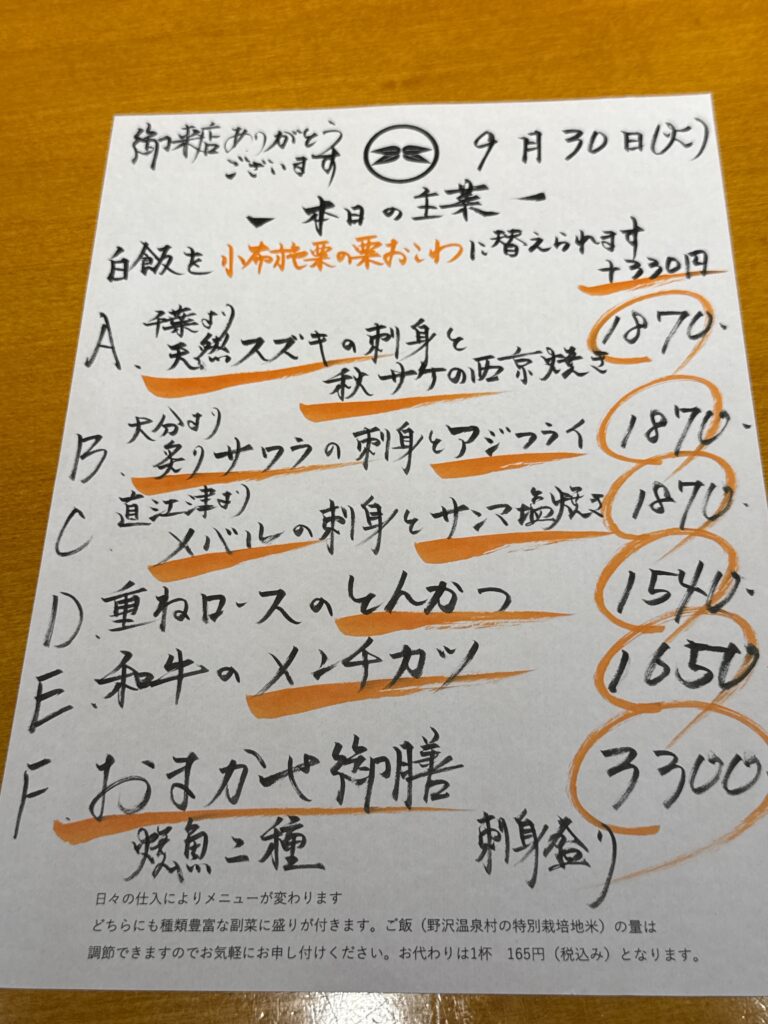 御来店ありがとう
ございます
9月30日(火)
ー 本日の主菜 ー
白飯を小布施栗の栗おこわに替えられます
+330円
A. 千葉より
天然スズキの刺身と
秋サケの西京焼き
1870.
B. 大分より
炙りサワラの刺身とアジフライ
1870.
C. 直江津より
メバルの刺身とサンマ塩焼き
1870.
D. 重ねロースのとんかつ
1540.
E. 和牛のメンチカツ
1650
F. おまかせ御膳
3300.
焼魚二種 刺身盛り
日々の仕入によりメニューが変わります
どちらにも種類豊富な副菜に盛りが付きます。ご飯（野沢温泉村の特別栽培地米）の量は
調節できますのでお気軽にお申し付けください。お代わりは1杯 165円（税込み）となります。